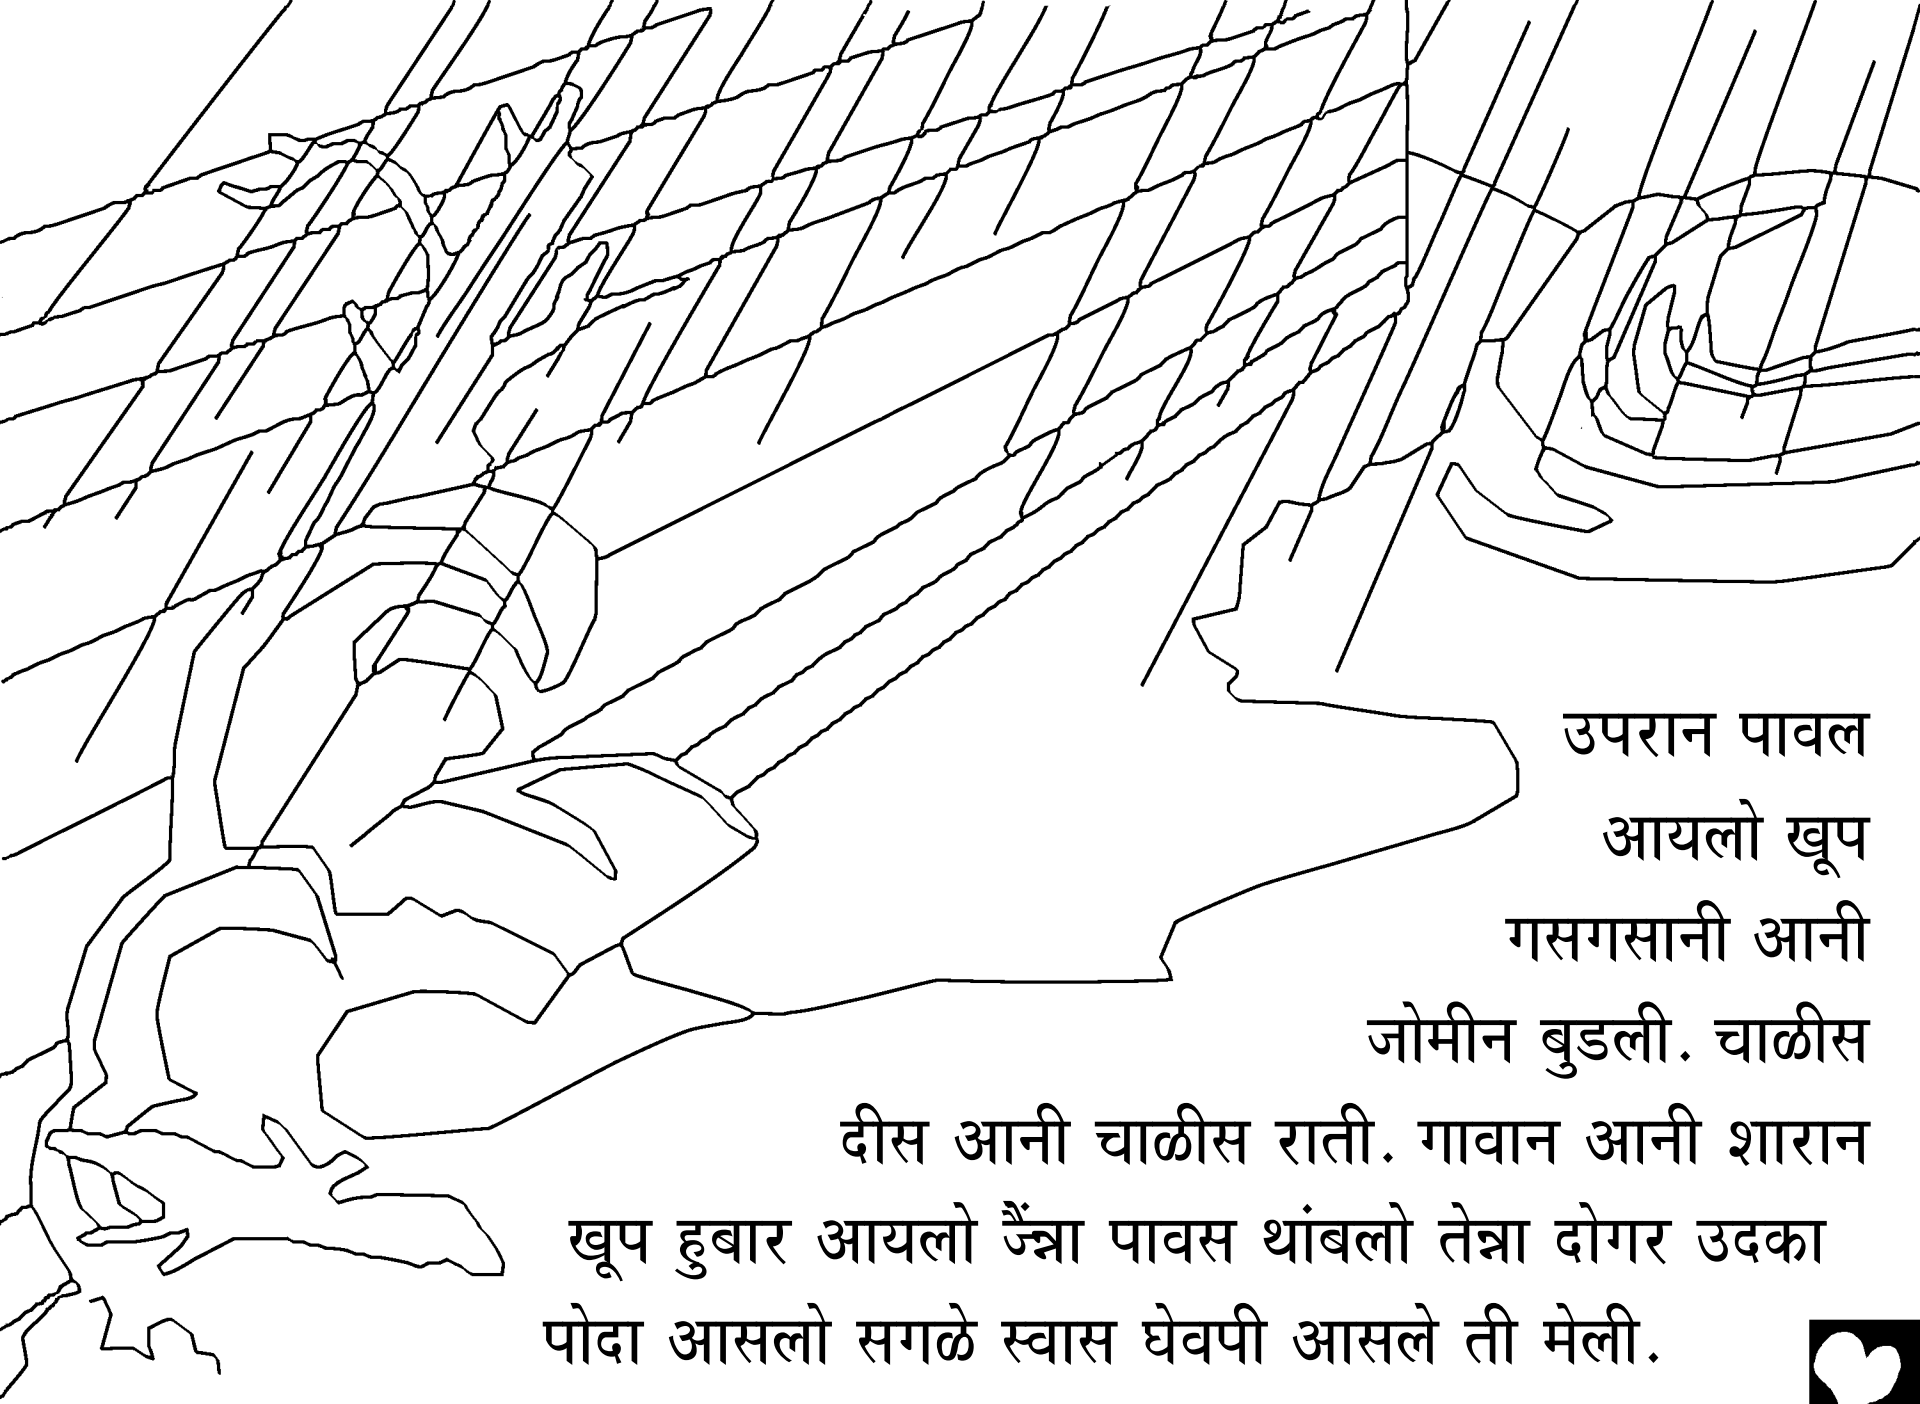 उपरान पावल
आयलो खूप
गसगसानी आनी
जोमीन बुडली. चाळीस
दीस आनी चाळीस राती. गावान आनी शारान
खूप हुबार आयलो ज्रैंन्ना पावस थांबलो तेन्ना दोगर उदका
पोदा आसलो सगळे स्वास घेवपी आसले ती मेली.